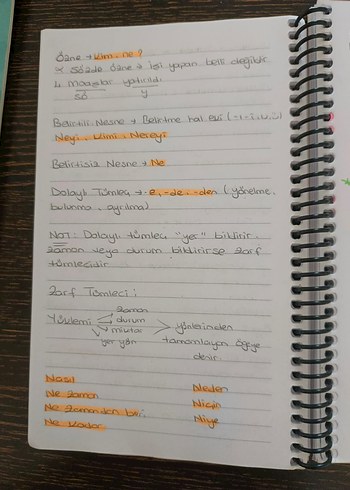 Özne → kim, ne?
* Sözde özne → işi yapan belli değildir.
↳ Maaşlar yatırıldı
sö y
Belirtili Nesne → Belirtme hal eki (-ı,-i,-u,-ü)
Neyi, kimi, Nereyi
Belirtisiz Nesne → Ne
Dolaylı Tümleç → -e, -de, -den (yönelme,
bulunma, ayrılma)
NOT: Dolaylı tümleç "yer" bildirir.
zaman veya durum bildirirse zarf
tümlecidir.
Zarf Tümleci:
Yüklemi zaman
durum
miktar
yer yön
yönlerinden
tamamlayan ögeye
denir.
Nasıl Neden
Ne zaman Niçin
Ne zamandan beri Niye
Ne kadar